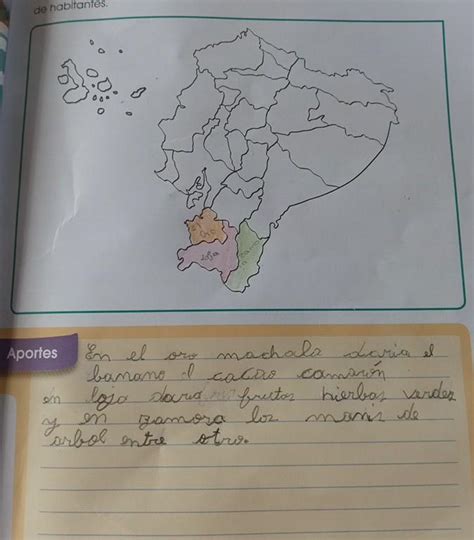 de habitantes.
El Oro
Loja
Aportes
En el oro machala daria el
banano el cacao camarón
en loja dará frutos hierbas verdes
y en zamora los manis de
arbol entre otro.